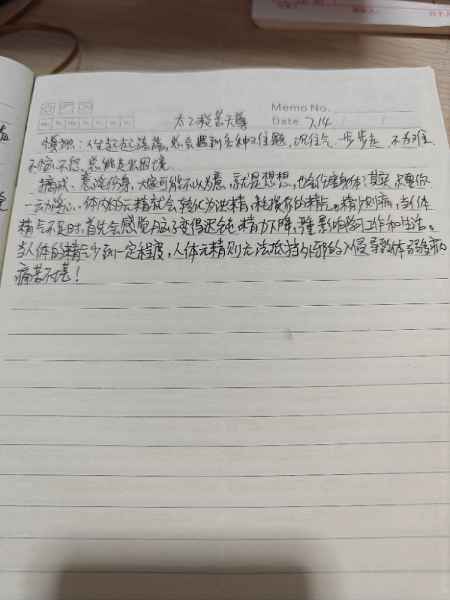 Memo No.
太乙救苦天尊
Date 7.14
情况：人生起起落落，总会遇到各种难题，沉住气，一步步走，不为难
不惊不怒，总能走出困境
戒：意淫伤身，大家可能不以为意，就是想想，也会伤害身体，其实，只要你
一动淫心，体内的元精就会转化为淫精，耗损你的精元。精少则病，当人体
精气不足时，首先会感觉脑子变得迟钝，精力下降，影响学习工作和生活。
当人体的精气少到一定程度，人体元精则无法抵挡外邪的入侵导致体弱病
痛苦不堪！